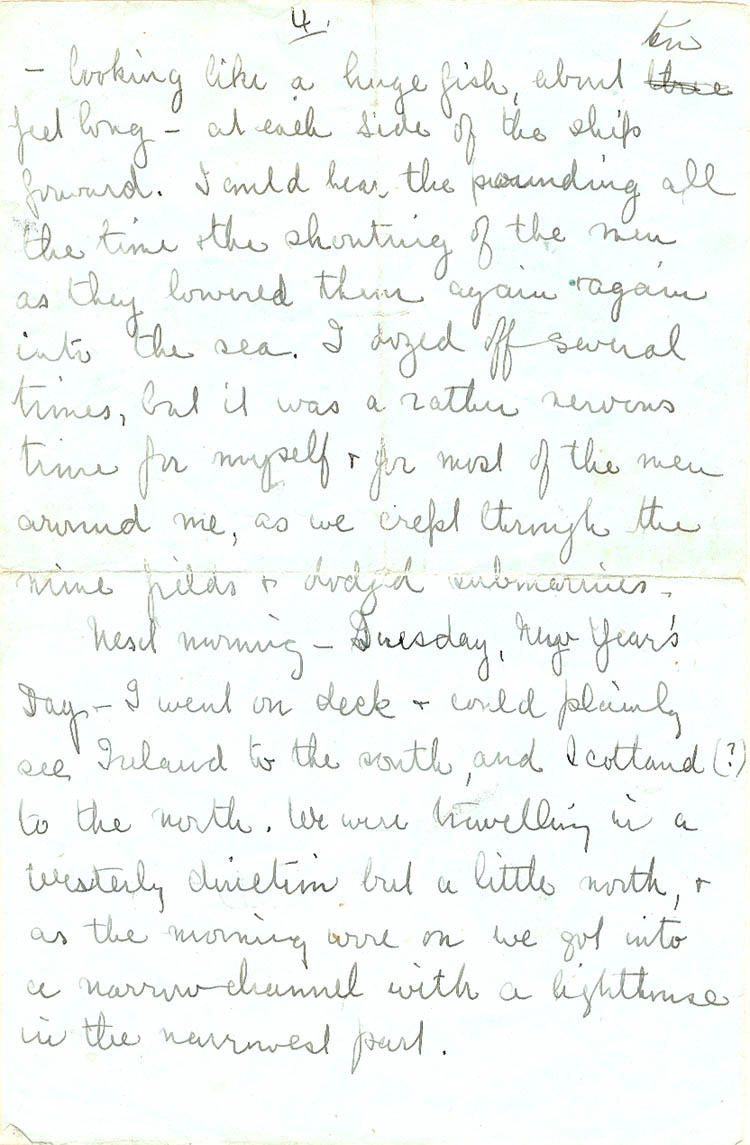 4.
ten
- looking like a huge fish, about three
feet long - at each side of the ship
forward. I could hear the pounding all
the time & the shouting of the men
as they lowered them again & again
into the sea. I dozed off several
times, but it was a rather nervous
time for myself & for most of the men
around me, as we crept through the
mine fields & dodged submarines.
Next morning - Tuesday, New Year's
Day - I went on deck & could plainly
see Ireland to the south, and Scotland (?)
to the north. We were travelling in a
Westerly direction but a little north, &
as the morning wore on we got into
a narrow channel with a lighthouse
in the narrowest part.